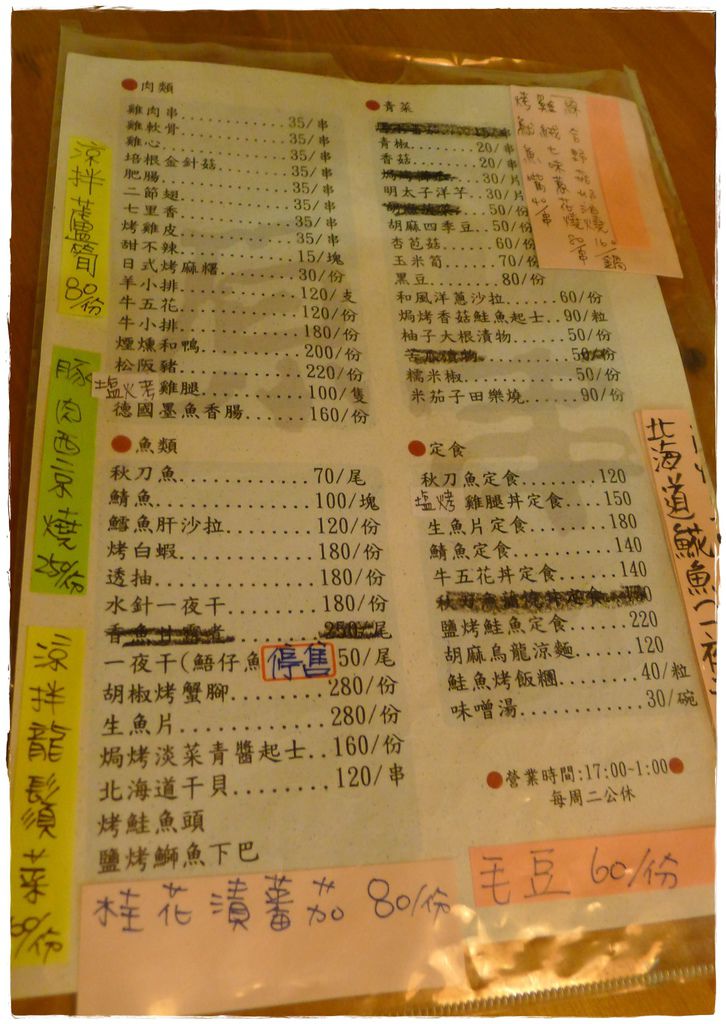 ●肉類
雞肉串............35/串
雞軟骨............35/串
雞心..............35/串
培根金針菇........35/串
肥腸..............35/串
二節翅............35/串
七里香............35/串
烤雞皮............35/串
甜不辣............15/塊
日式烤麻糬........30/份
羊小排............120/支
牛五花............120/份
牛小排............180/份
煙燻和鴨..........200/份
松阪豬............220/份
塩火烤雞腿........100/隻
德國墨魚香腸......160/份
●魚類
秋刀魚............70/尾
鯖魚..............100/塊
鱈魚肝沙拉........120/份
烤白蝦............180/份
透抽..............180/份
水針一夜干........180/份
香魚甘露煮........250/尾
一夜干(鯃仔魚 停售 50/尾
胡椒烤蟹腳........280/份
生魚片............280/份
焗烤淡菜青醬起士..160/份
北海道干貝........120/串
烤鮭魚頭
鹽烤鰤魚下巴
●青菜
青椒..............20/串
香菇..............20/串
30/片
明太子洋芋........30/片
50/份
胡麻四季豆........50/份
杏苞菇............60/份
玉米筍............70/份
黑豆..............80/份
和風洋蔥沙拉......60/份
焗烤香菇鮭魚起士..90/粒
柚子大根漬物......50/份
苦瓜漬物..........50/份
糯米椒............50/份
米茄子田樂燒......90/份
●定食
秋刀魚定食........120
塩烤雞腿丼定食....150
生魚片定食........180
鯖魚定食..........140
牛五花丼定食......140
鹽烤鮭魚定食......220
胡麻烏龍涼麵......120
鮭魚烤飯糰........40/粒
味噌湯............30/碗
●營業時間:17:00~1:00●
每周二公休
涼拌蘆筍 80/份
豚肉西京燒 250/份
涼拌龍鬚菜
桂花漬蕃茄 80/份
毛豆 60/份